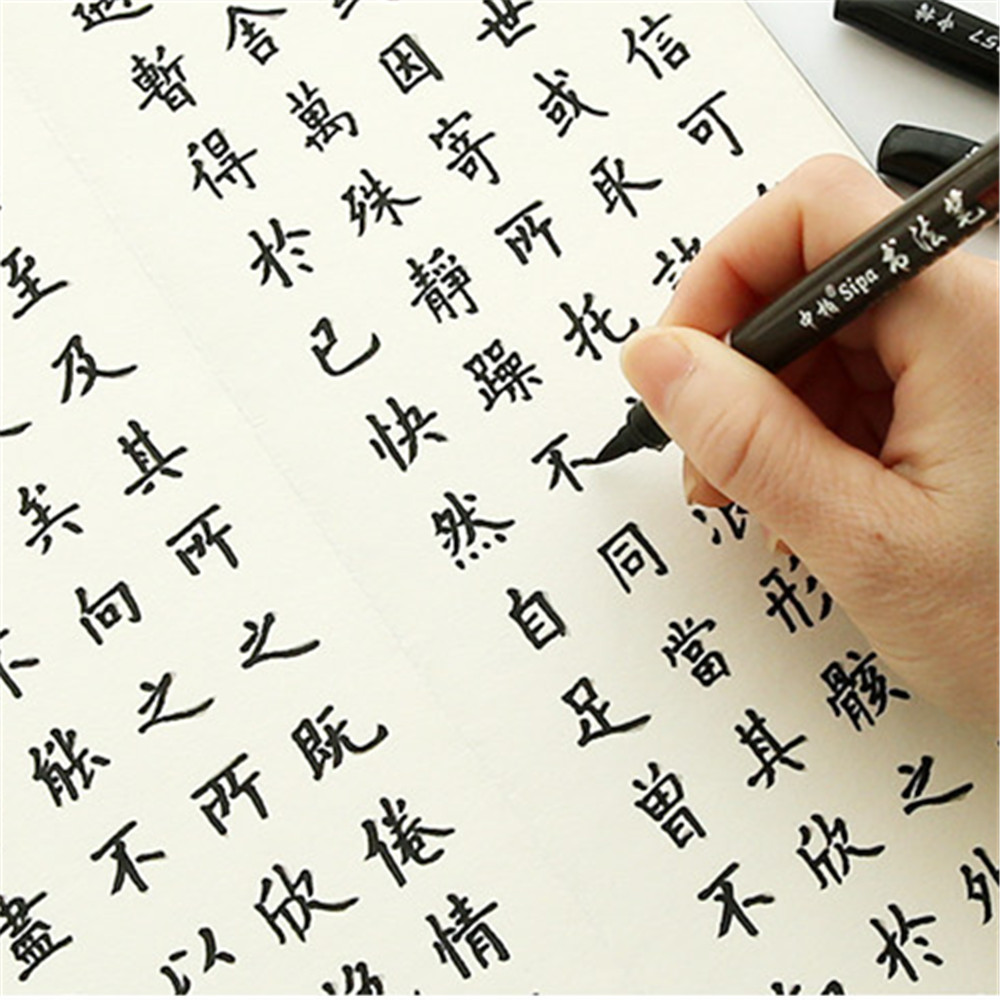 信可
世或取
因寄所托浪形骸之外
舍萬殊靜躁不同當其欣於
暫得於已快然自足曾不
至及其所之既倦情
矣向之所欣
不能不以
盡
中柏®Sipa 书法笔